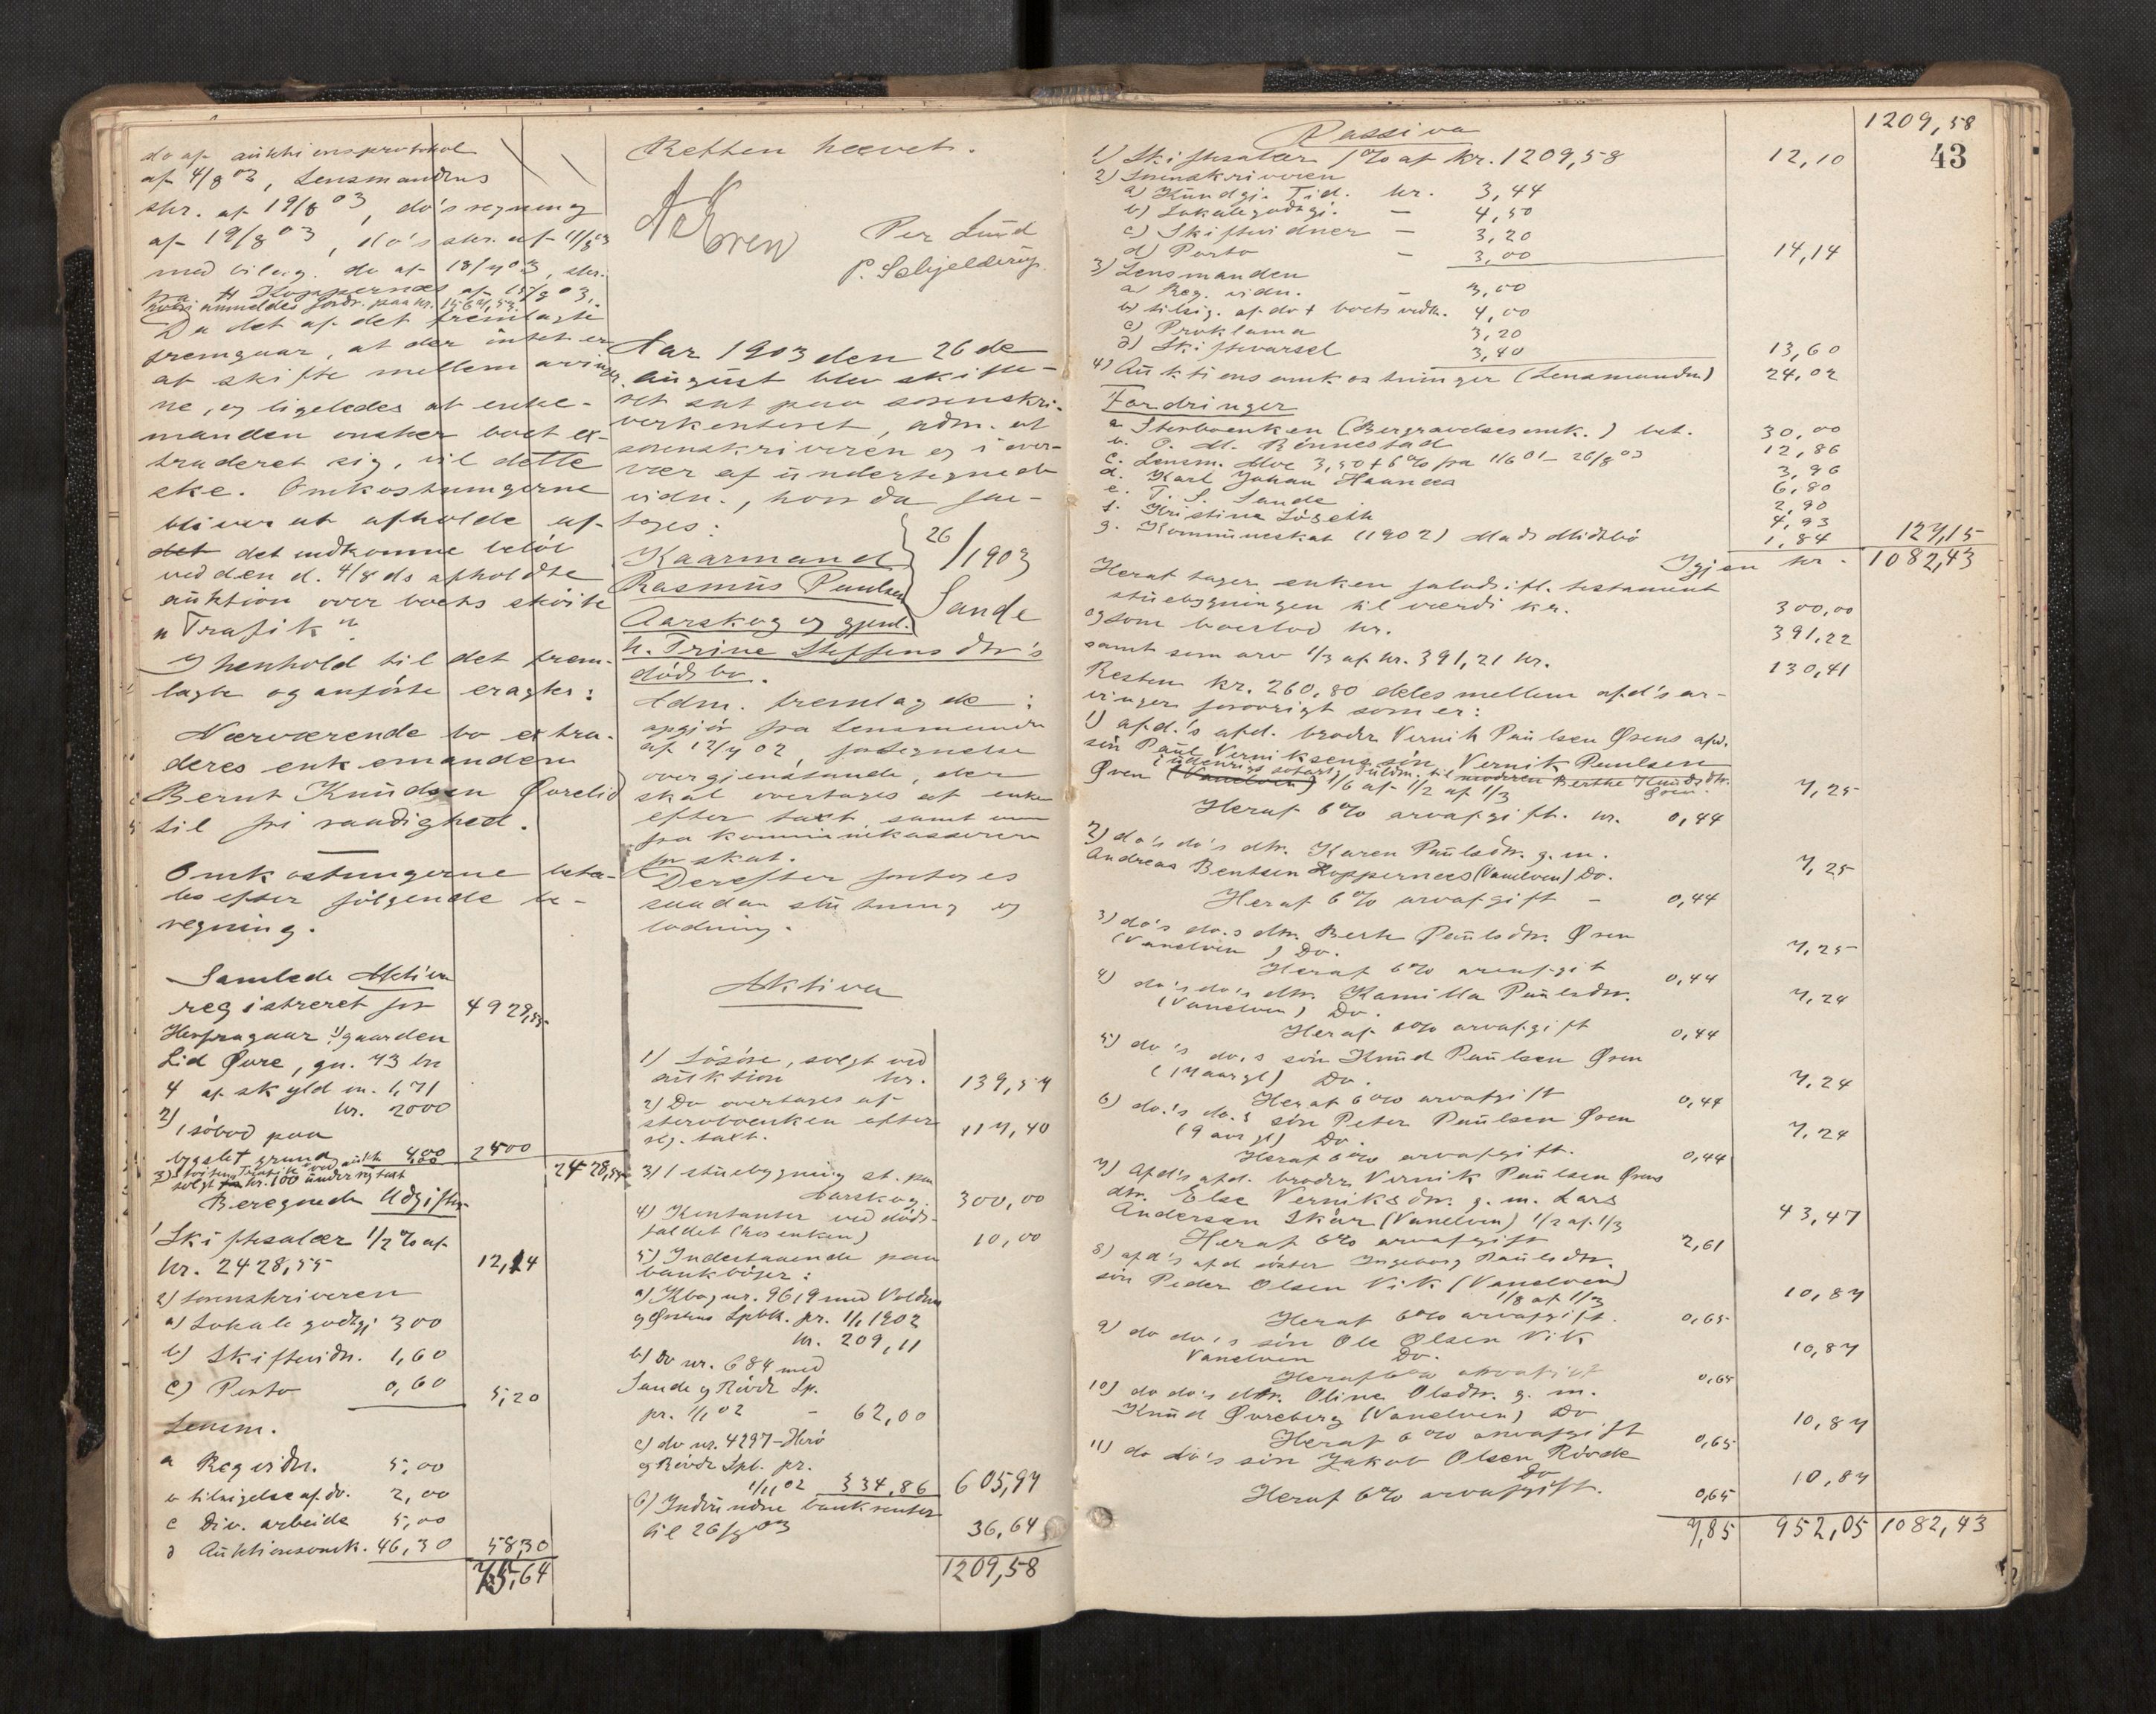 do af auktionsprotokol
af 4/8 03, Lensmandens
skr. af 19/8 03, do's regning
af 19/8 03, do's skr. af 11/8 03
med bilag. do af 18/7 03, skr.
fra H Koppernæs af 15/8 03,
hvori anmeldes fordr. paa kr. 1564,53.
Da det af det fremlagte
fremgaar, at der intet er
at skifte mellem arvinger-
ne, og ligeledes at enke-
manden ønsker boet ex-
traderet sig, vil dette
ske. Omkostningerne
bliver at afholde af
det indkomne beløb
ved den d. 4/8 ds afholdte
auktion over boets skøite
"Trafik".
I henhold til det frem-
lagte og anførte eragtes:
Nærværende bo extra-
deres enkemanden
Bernt Knudsen Øvrelid
til fri raadighed.
Omkostningerne beta-
les efter følgende be-
regning.
Samlede Aktiva
registreret for 4928,55
Herfragaar 1) gaarden
Lid Øvre, gn. 73 bn
4 af skyld m. 1,71
kr. 2000
2) 1 søbod paa
bygslet grund 400 2500
3) skøiten Trafik ved aukt.
solgt kr. 100 under regtaxt 2428,55
Beregnede Udgifter
1 Skiftesalær 1/2 % af
kr. 2428,55 12,14
2) sorenskriveren
a) Lokalegodtgj 300
b) Skiftevidn. 1,60
c) Porto 0,60 5,20
Lensm.
a Reg vidn. 5,00
b tilsigelse af do. 2,00
c Div. arbeide 5,00
d Auktionsomk. 46,30 58,30
75,64
Retten hævet.
Per Lund
P. Schjelderup
Aar 1903 den 26de
august blev skifte-
ret sat paa sorenskri-
verkontoret, adm. af
sorenskriveren og i over-
vær af undertegnede
vidn., hvor da fore-
toges:
Kaarmand 26/1903
Rasmus Paulsen
Aarskog og gjenl. Sande
h. Trine Steffensdtr's
dødsbo.
Adm. fremlagde:
opgjør fra Lensmanden
af 12/7 02, fortegnelse
over gjenstande, der
skal overtages af enken
efter taxt samt
fra kommunekassereren
for skat.
Derefter foretoges
saadan slutning og
lodning.
Aktiva
1) Løsøre, solgt ved
auktion kr. 139,54
2) Do overtages af
sterboenken efter
reg. taxt. 117,40
3) 1 stuebygning st. paa
Aarskog. 300,00
4) Kontanter ved døds-
faldet (hos enken) 10,00
5) Indestaaende paa
bankbøger:
a) Kbog nr. 9619 med Volden
og Ørstens Spbk. pr. 1/1 1902
kr. 209,11
b) Do nr. 684 med
Sande og Røvde Sp.
pr. 1/1 02 - 62,00
c) do nr. 4297 - Herø
og Røvde Spb. pr.
1/1 02 334,86 605,97
6) Indvundne bankrenter
til 26/8 03 36,64
1209,58
1209,58
43
Passiva
1) Skiftesalær 1% af kr. 1209,58 12,10
2) Sorenskriveren
a) Kundgj. Tid. kr. 3,44
b) Lokalegodtgj. - 4,50
c) Skiftevidner - 3,20
d) Porto - 3,00 14,14
3) Lensmanden
a) Reg. vidn. - 3,00
b) tilsig. af do + boets vedk. 4,00
c) Proklama 3,20
d) Skiftevarsel 3,40 13,60
4) Auktionsomkostninger (Lensmanden) 24,02
Fordringer
a Sterboenken (Begravelsesomk.) bet. 30,00
b. P. M. Rønnestad 12,86
c. Lensm. Moe 3,50 + 6% fra 1/6 01 - 26/8 03 3,96
d. Karl Johan Haanæs 6,80
e. T. S. Sande 2,90
f. Kristine Løseth 4,93
g. Kommuneskat (1902) Mads Midtbø 1,84 127,15
Igjen kr. 1082,43
Heraf tager enken forlods ifl. testament
stuebygningen til værdi kr. 300,00
og som boeslod kr. 391,22
samt som arv 1/3 af kr. 391,21 kr. 130,41
Resten kr. 260,80 deles mellem afd's ar-
vinger forøvrigt som er:
1) afd.'s afd. broder Vernik Paulsen Ørens afd.
søn Paul Verniksens søn Vernik Paulsen
(udenrigs søfart, fuldm. til moderen Berthe Knudsdtr. Øren
Øren (Vanelven) 1/6 af 1/2 af 1/3 7,25
Heraf 6% arvafgift. kr. 0,44
2) do's do's dtr. Karen Paulsdtr. g. m.
Andreas Bentsen Koppernæs (Vanelven) Do. 7,25
Heraf 6% arvafgift - 0,44
3) do's do.s dtr. Berte Paulsdtr. Øren
(Vanelven) Do. 7,25
Heraf 6% arvafgift 0,44
4) do's do's dtr. Kamilla Paulsdtr.
(Vanelven) Do. 7,24
Heraf 6% arvafgift 0,44
5) do's do.s søn Knud Paulsen Øren
(17 aar gl) Do. 7,24
Heraf 6% arvafgift 0,44
6) do.'s do.s søn Peter Paulsen Øren
(9 aar gl) Do. 7,24
Heraf 6% arvafgift. 0,44
7) Afd's afd. broder Vernik Paulsen Ørens
dtr. Else Verniksdtr. g. m. Lars
Andersen Skår (Vanelven) 1/2 af 1/3 43,47
Heraf 6% arvafgift 2,61
8) afd's afd søster Ingeborg Paulsdtr.
søn Peder Olsen Vik (Vanelven)
1/8 af 1/3 10,87
Heraf 6% arvafgift. 0,65
9) do do's søn Ole Olsen Vik
Vanelven Do. 10,87
Heraf 6% arvafgift 0,65
10) do do's dtr. Oline Olsdtr. g. m.
Knud Øvreberg (Vanelven) Do 10,87
Heraf 6% arvafgift 0,65
11) do do's søn Jakob Olsen Røvde
Do 10,87
Heraf 6% arvafgift. 0,65
7,85 952,05 1082,43